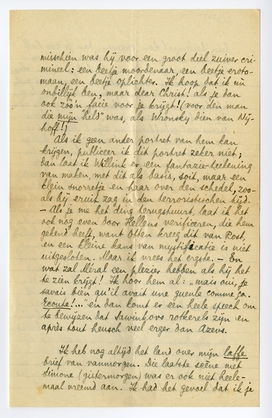 misschien was hij voor een groot deel zuiver cri-
mineel: een beetje moordenaar, een beetje eroto-
maan, een beetje oplichter. Ik hoop dat ik nu
onbillijk ben, maar dear Christ! als je dan
ook zóó'n facie voor je krijgt! (voor den man
die mijn "held" was, als Wronsky dien van Nij-
hoff!)
Als ik geen ander portret van hem kan
krijgen, publiceer ik dit portret zeker niet;
dan laat ik Willink er een fantazie-teekening
van maken, met dit als basis, soit, maar een
klein snorretje en haar over den schedel, zoo-
als hij eruit zag in den terroristischen tijd.
– Als je me het ding terugstuurt, laat ik het
ook nog even door Hellens verifieeren, die hem
gekend heeft, want Otten kreeg dit van
en een kleine kans van mystificatie is niet
uitgesloten. Maar ik vrees het ergste. – En
wat zal Méral een plezier hebben als hij het
te zien krijgt! Ik hoor hem al: "mais oui, je
savais bien qu'il avait une gueule comme ça.
Ecoute!..." en dan komt er een heele speech om
te bewijzen dat Savinkov rotkerels zijn en
après tout heusch veel erger dan Azeva.
Ik heb nog altijd het land over mijn laffe
brief van vanmorgen. Die laatste scène met
Simone (gistermorgen) was er ook niet heele-
maal vreemd aan. Ik had het gevoel dat ik je